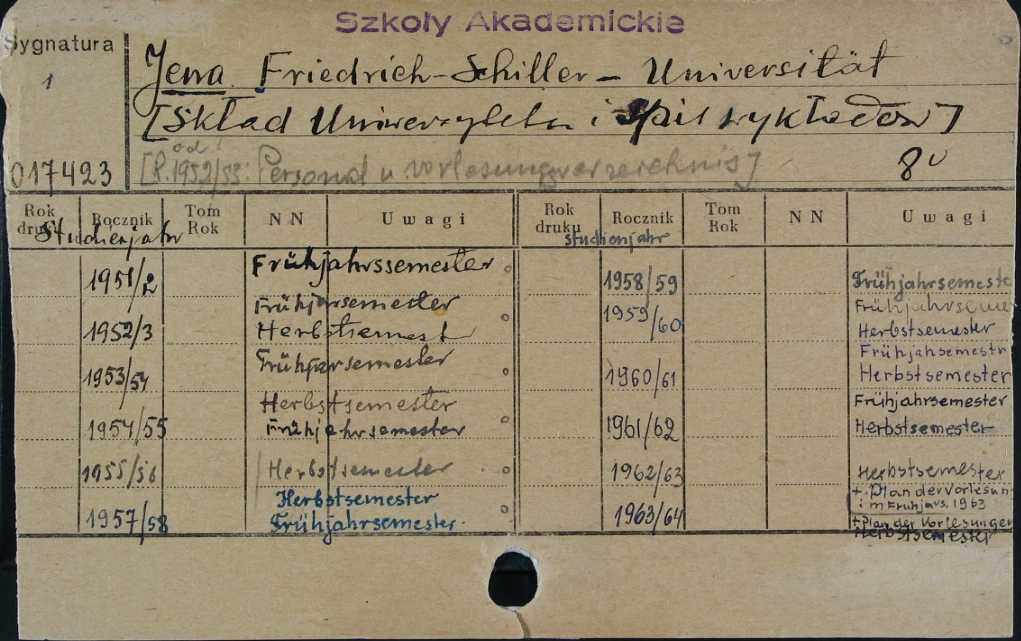 Szkoły Akademickie
Sygnatura
1
Jena Friedrich-Schiller - Universität
[Skład Uniwersytetu i Spis wykładów]
od
017423 [R. 1952/53: Personal u Vorlesungsverzeichnis] 8°
Rok druku Rocznik Tom Rok NN Uwagi Rok druku Rocznik Tom Rok NN Uwagi
Studienjahr studienjahr
1951/2 Frühjahrssemester 1958/59 Frühjahrsemeste
Frühjarsemester Frühjahrseme
1952/3 Herbstsemest 1959/60 Herbstsemester
Frühjarsemester Frühjahsemestr
1953/54 1960/61 Herbstsemester
Herbstsemester Frühjahrsemester
1954/55 Frühjahrsemester 1961/62 Herbstsemester
1955/56 Herbstsemester 1962/63 Herbstsemester
+ Plan der Vorlesun
Herbstsemester im Frühjahrs. 1963
1957/58 Frühjahrsemester. 1963/64 + Plan der Vorlesungen
Herbstsemester